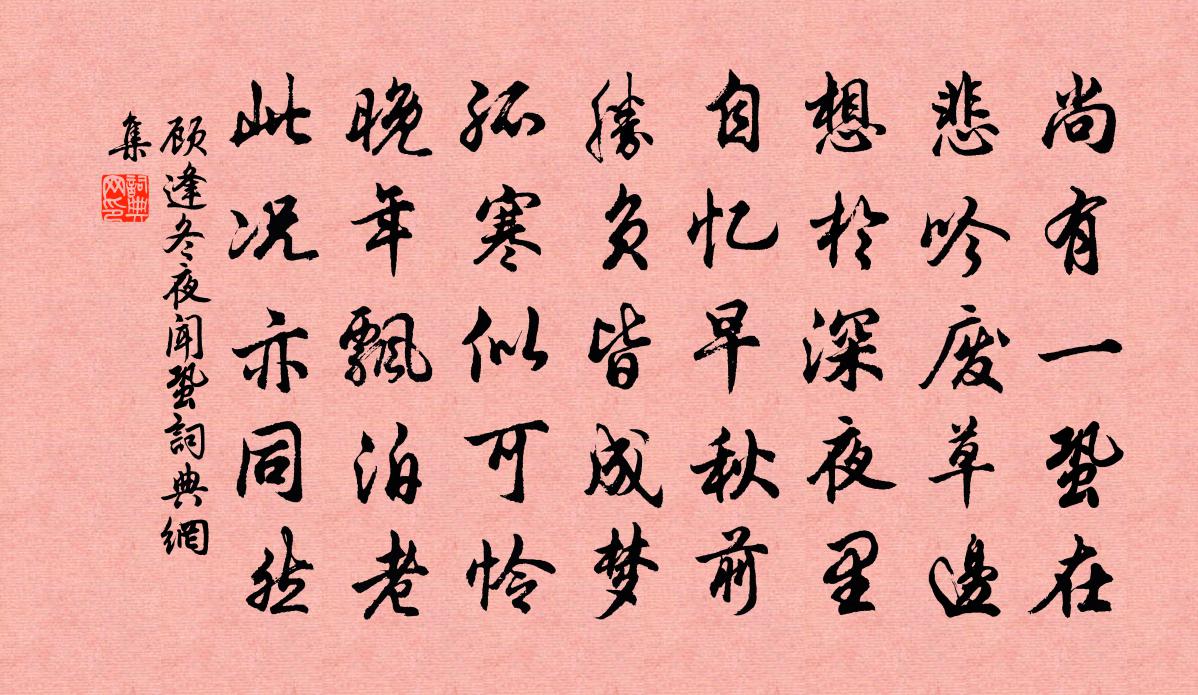 尚有一蛩在
悲吟废草邊
想於深夜里
自忆早秋前
勝负皆成梦
孤寒似可怜
晚年飘泊者
此况亦同然
顾逢冬夜闻蛩詞典網
集
詞典
网印